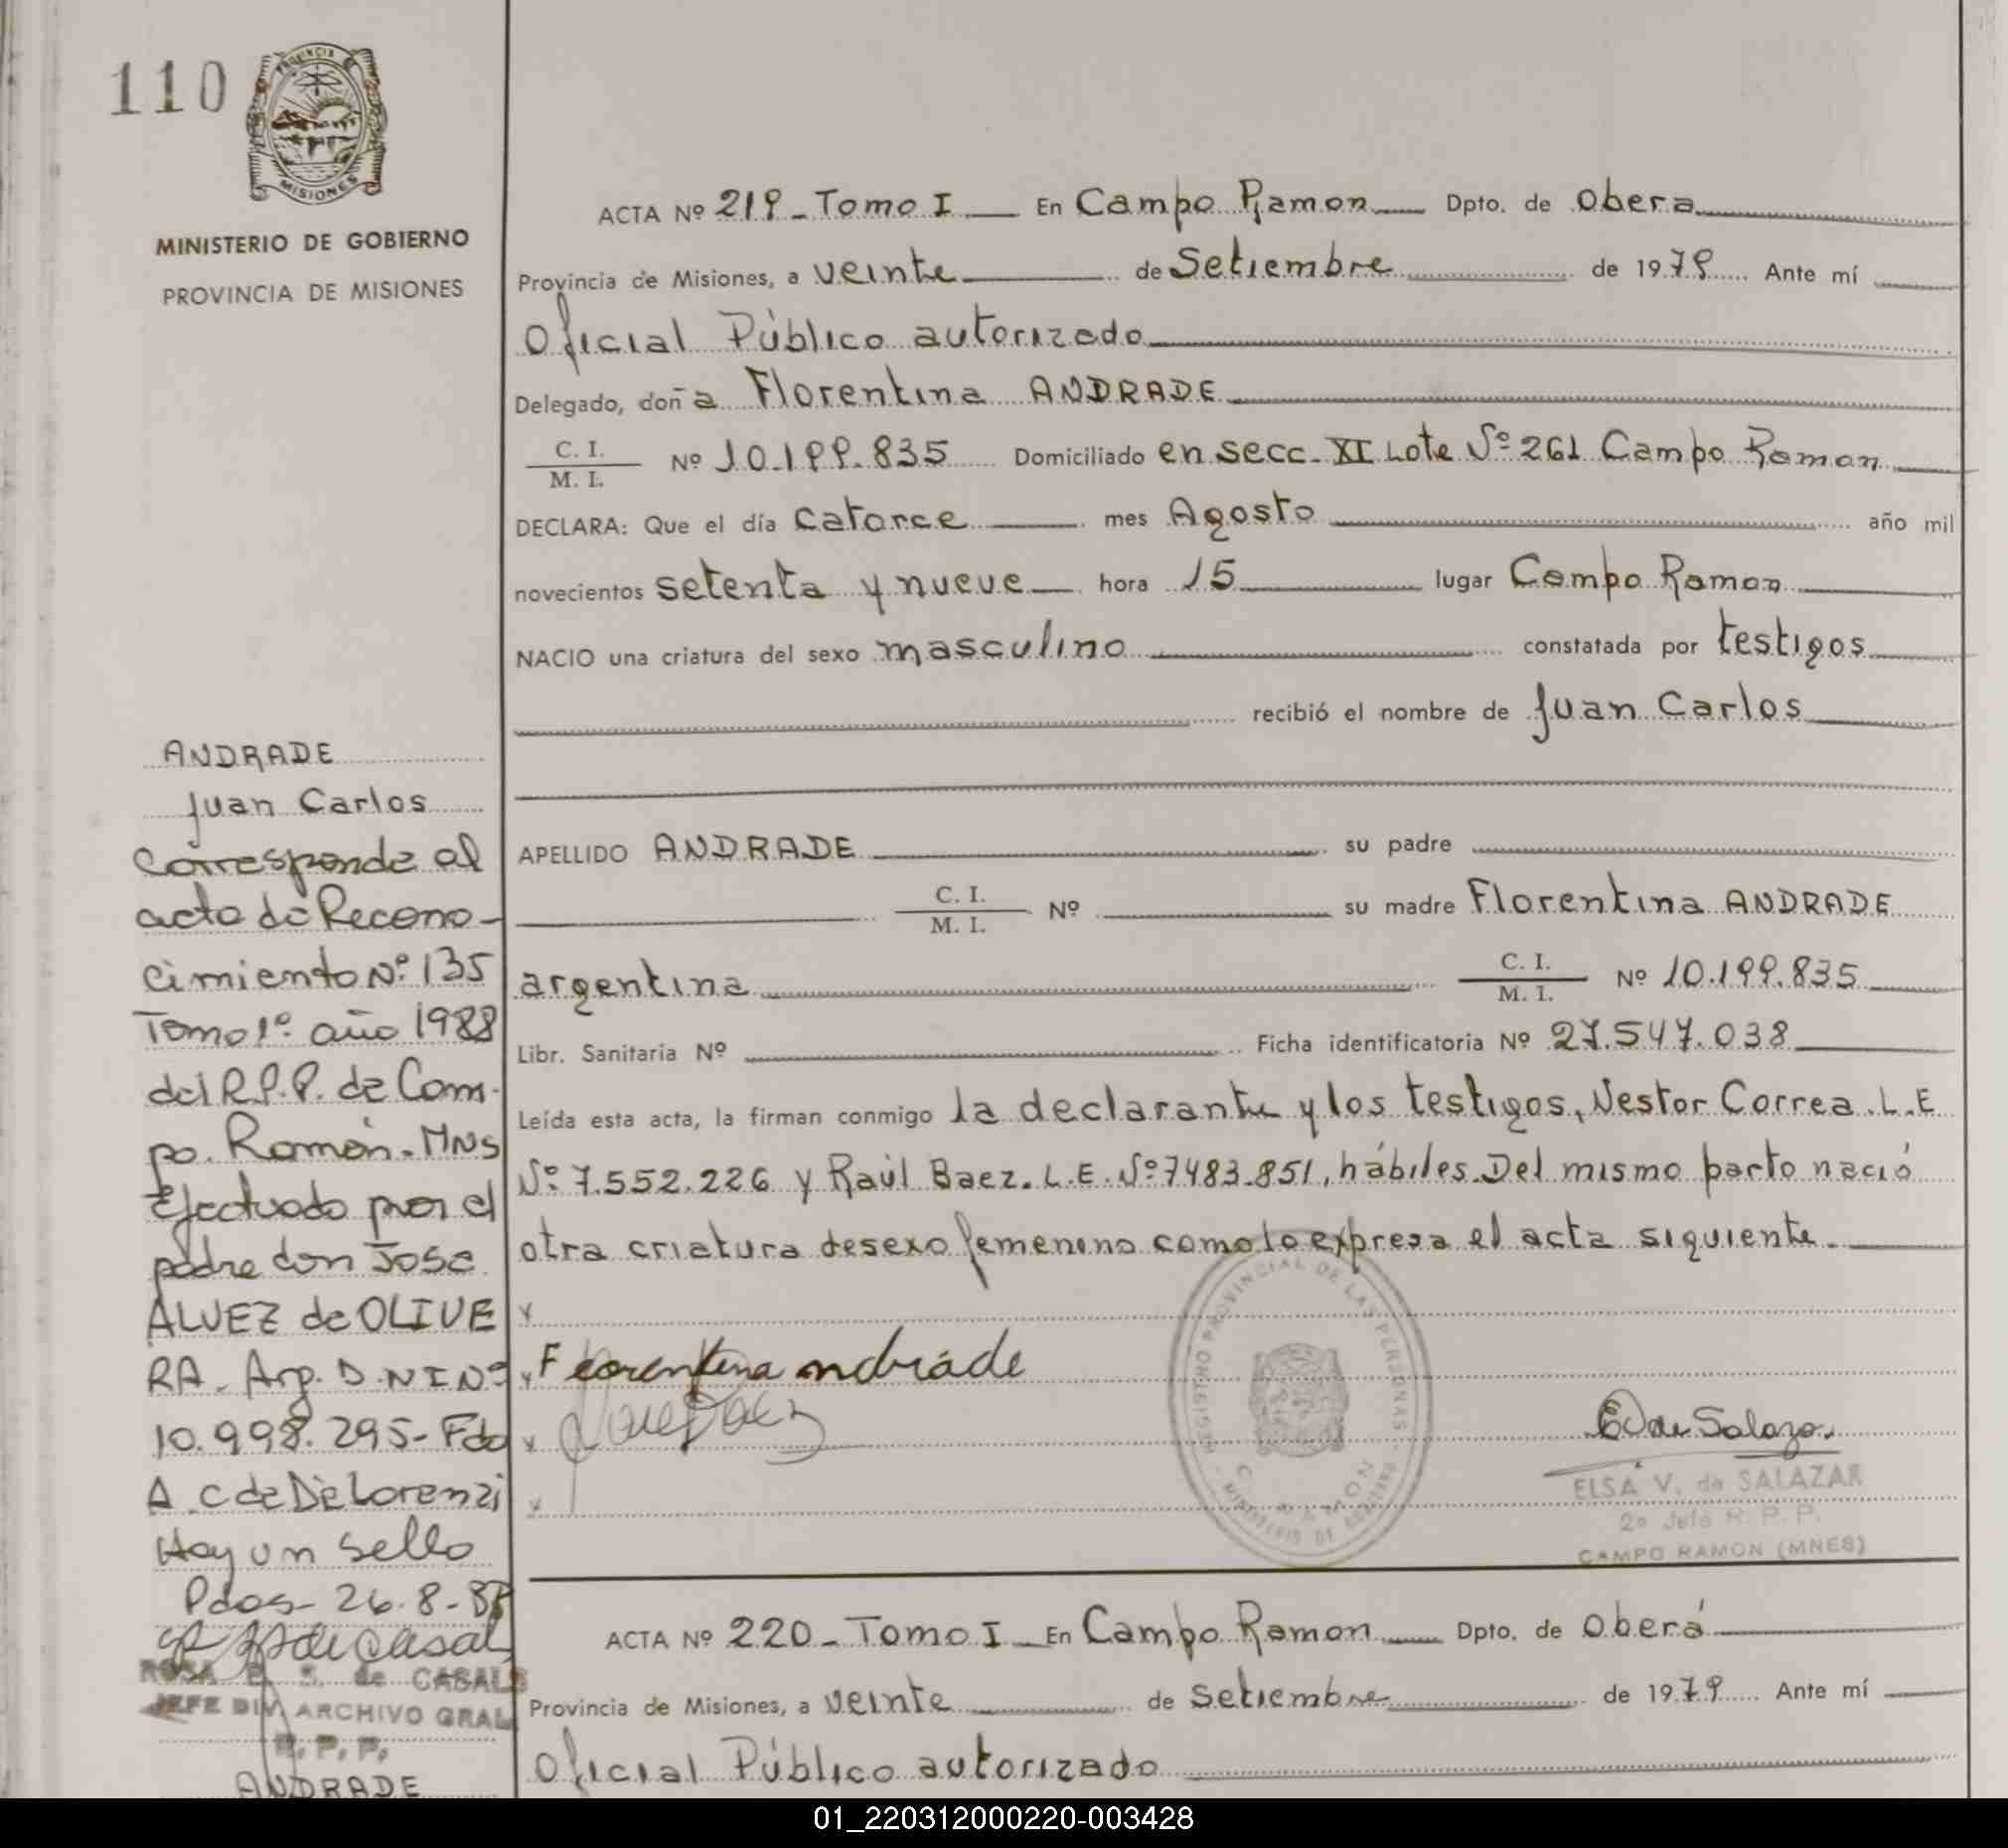 110
PROVINCIA DE
MISIONES
MINISTERIO DE GOBIERNO
PROVINCIA DE MISIONES
ACTA Nº 219 - Tomo I En Campo Ramon Dpto. de Obera
Provincia de Misiones, a veinte de Setiembre de 1979 Ante mí
Oficial Público autorizado
Delegado, doña Florentina ANDRADE
C. I.
M. I. Nº 10.199.835 Domiciliado en secc. XI Lote Nº 261 Campo Ramon
DECLARA: Que el día catorce mes Agosto año mil
novecientos setenta y nueve hora 15 lugar Campo Ramon
NACIO una criatura del sexo masculino constatada por testigos
recibió el nombre de Juan Carlos
APELLIDO ANDRADE su padre
C. I.
M. I. Nº su madre Florentina ANDRADE
argentina C. I.
M. I. Nº 10.199.835
Libr. Sanitaria Nº Ficha identificatoria Nº 27.547.038
Leída esta acta, la firman conmigo la declarante y los testigos, Nestor Correa. L.E
Nº 7.552.226 y Raúl Baez. L.E. Nº 7483.851, hábiles. Del mismo parto nació
otra criatura de sexo femenino como lo expresa el acta siguiente.
Florentina andrade
REGISTRO PROVINCIAL DE LAS PERSONAS
MINISTERIO DE GOBIERNO
C. RAMON
E V de Salazar
ELSA V. de SALAZAR
2º Jefe R. P. P.
CAMPO RAMON (MNES)
ANDRADE
Juan Carlos
Corresponde al
acta de Recono-
cimiento Nº 135
Tomo 1º año 1988
del R.P.P. de Cam-
po. Ramón. MNS
Efectuado por el
padre don José
ALVEZ de OLIVE
RA. Arg. D.NI Nº
10.998.295- Fdo
A. C de De Lorenzi
Hay un sello
Pdas- 26.8-88
de Casals
ROSA E. S. de CASALS
JEFE DIV. ARCHIVO GRAL
R. P. P.
ANDRADE
ACTA Nº 220 - Tomo I En Campo Ramon Dpto. de Oberá
Provincia de Misiones, a veinte de Setiembre de 1979 Ante mí
Oficial Público autorizado
01_220312000220-003428